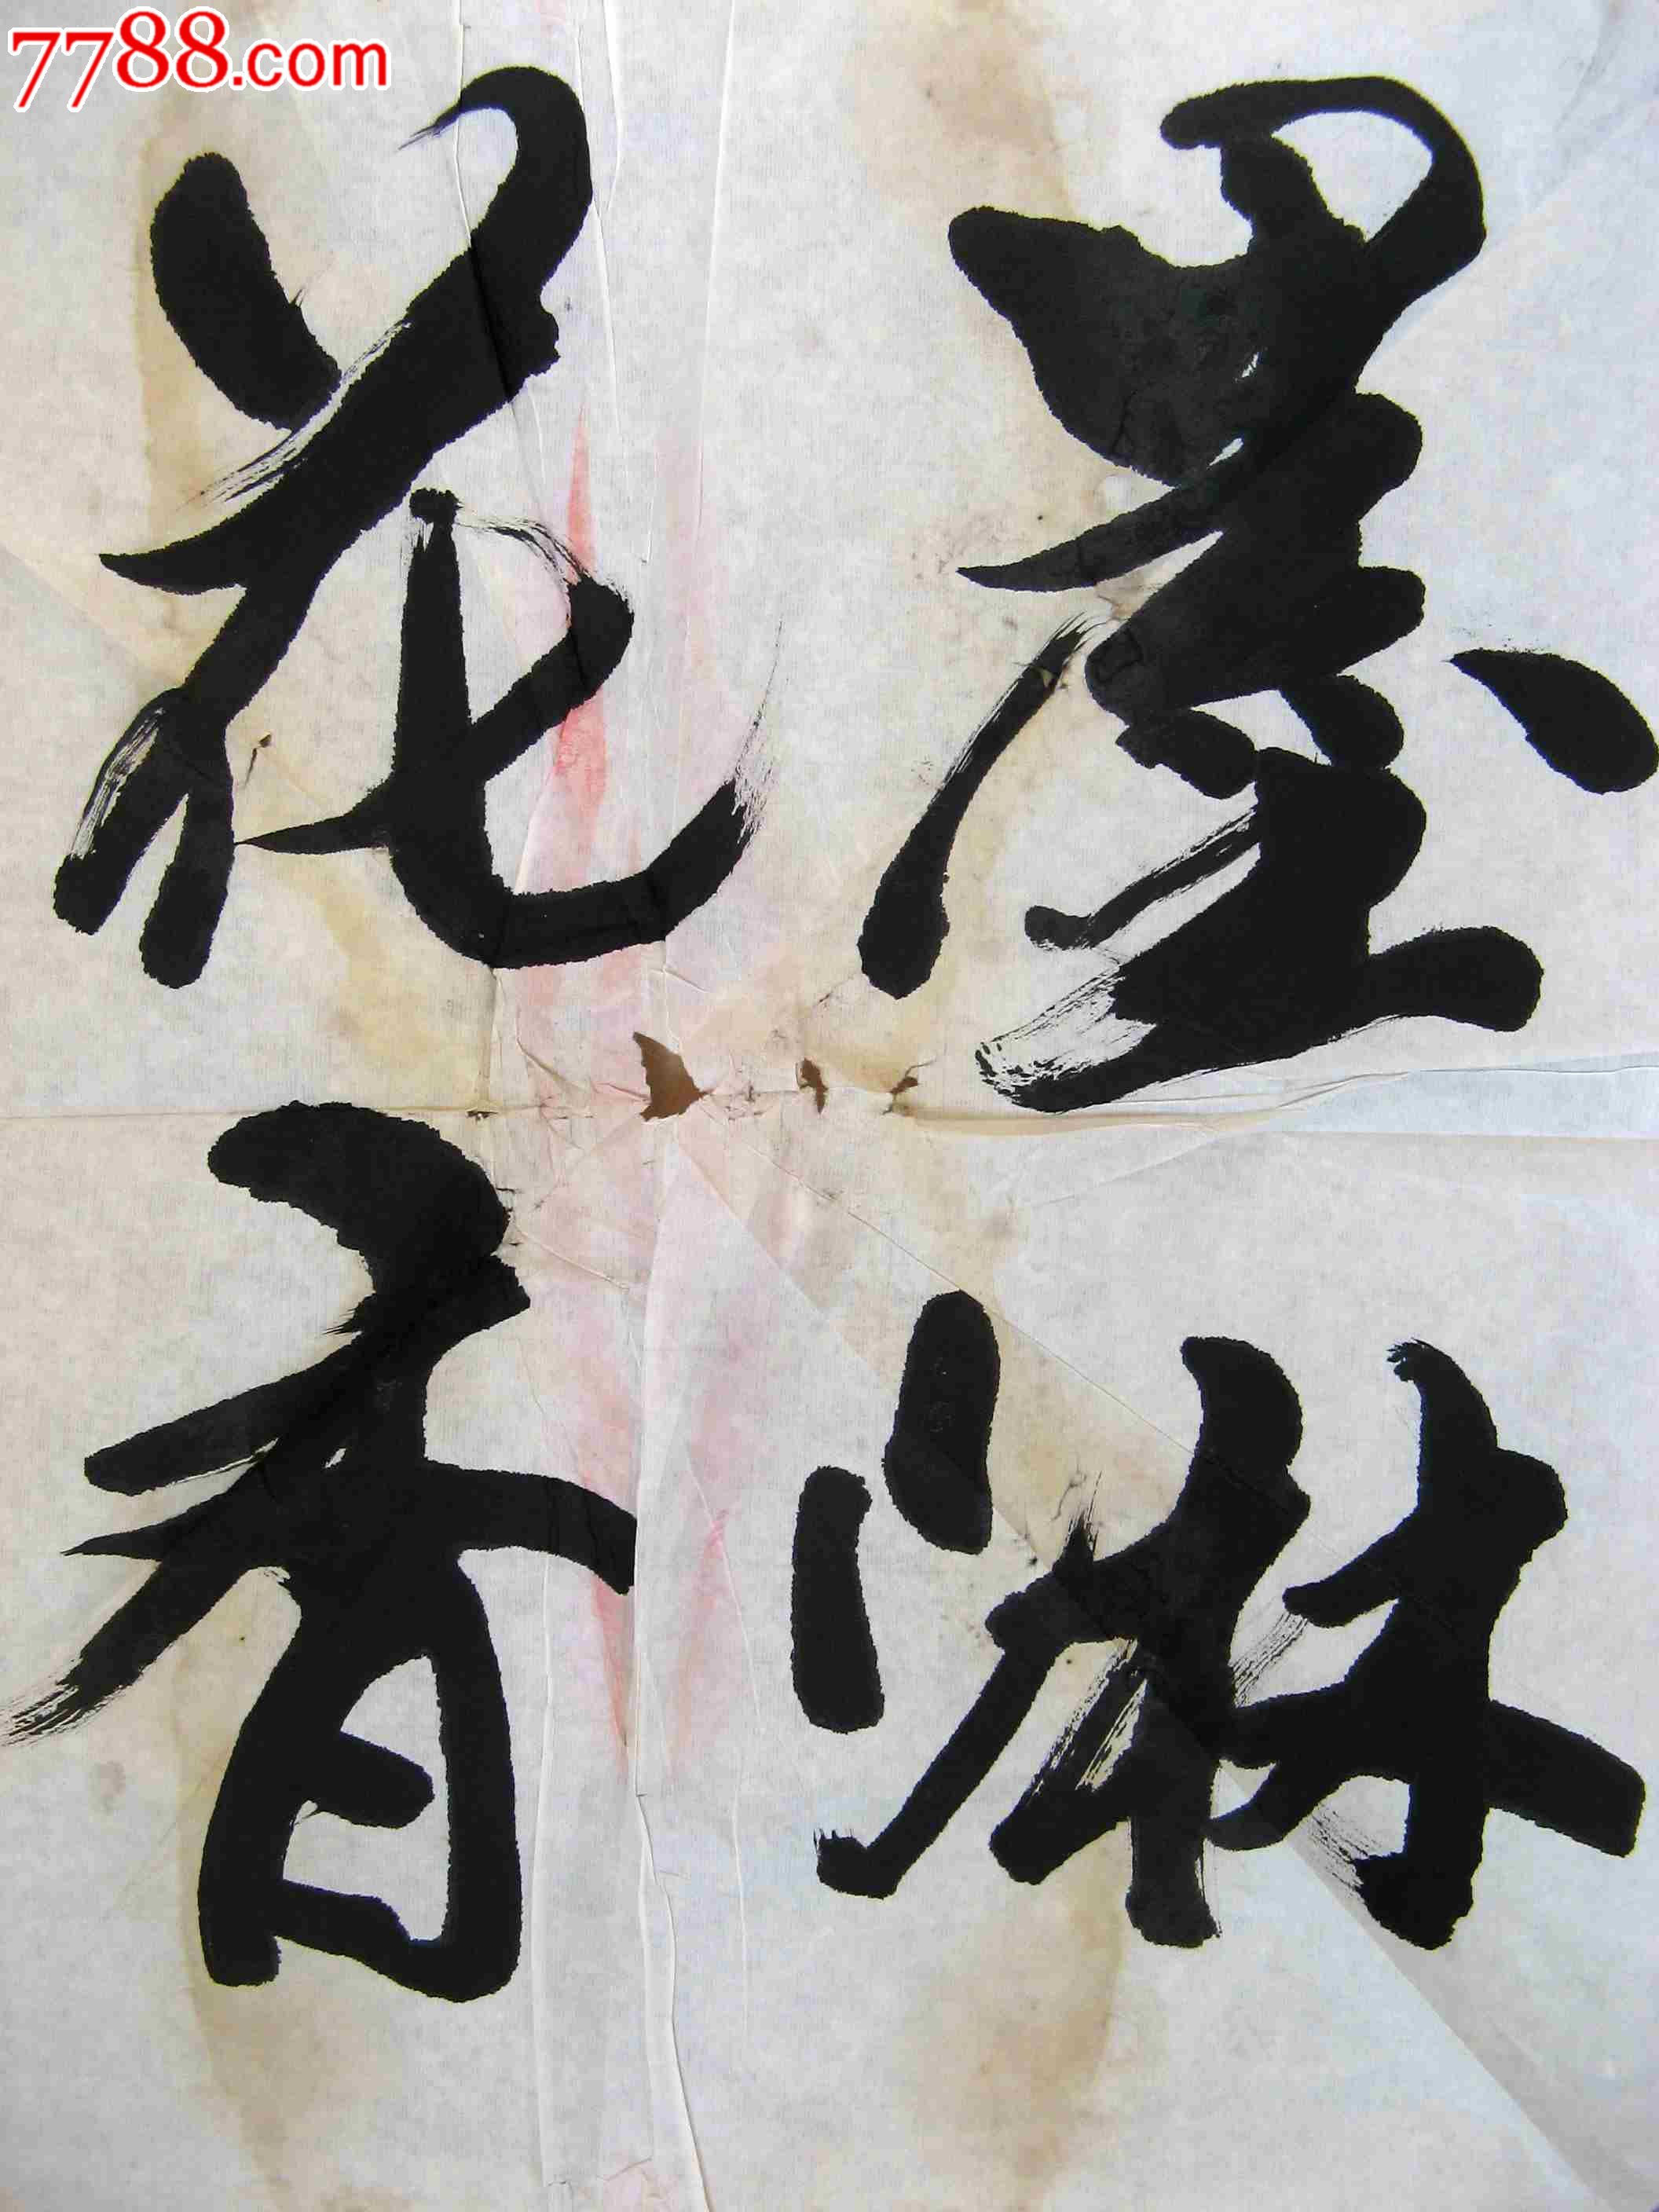 7788.com
墨淋
花香